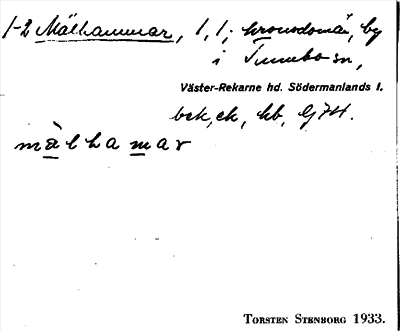 1-2 Mälhammar, 1,1; kronodomän, by
i Tumbo sn,
Väster-Rekarne hd. Södermanlands l.
bek, ek, hb, GJH.
mà l h a m a r
TORSTEN STENBORG 1933.